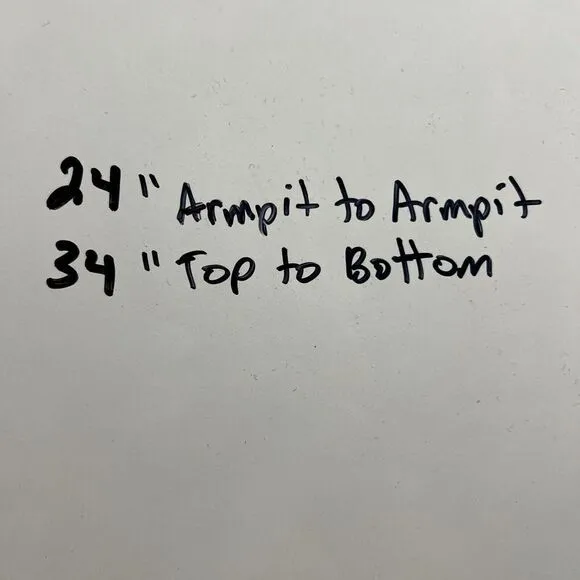 24" Armpit to Armpit
34" Top to Bottom